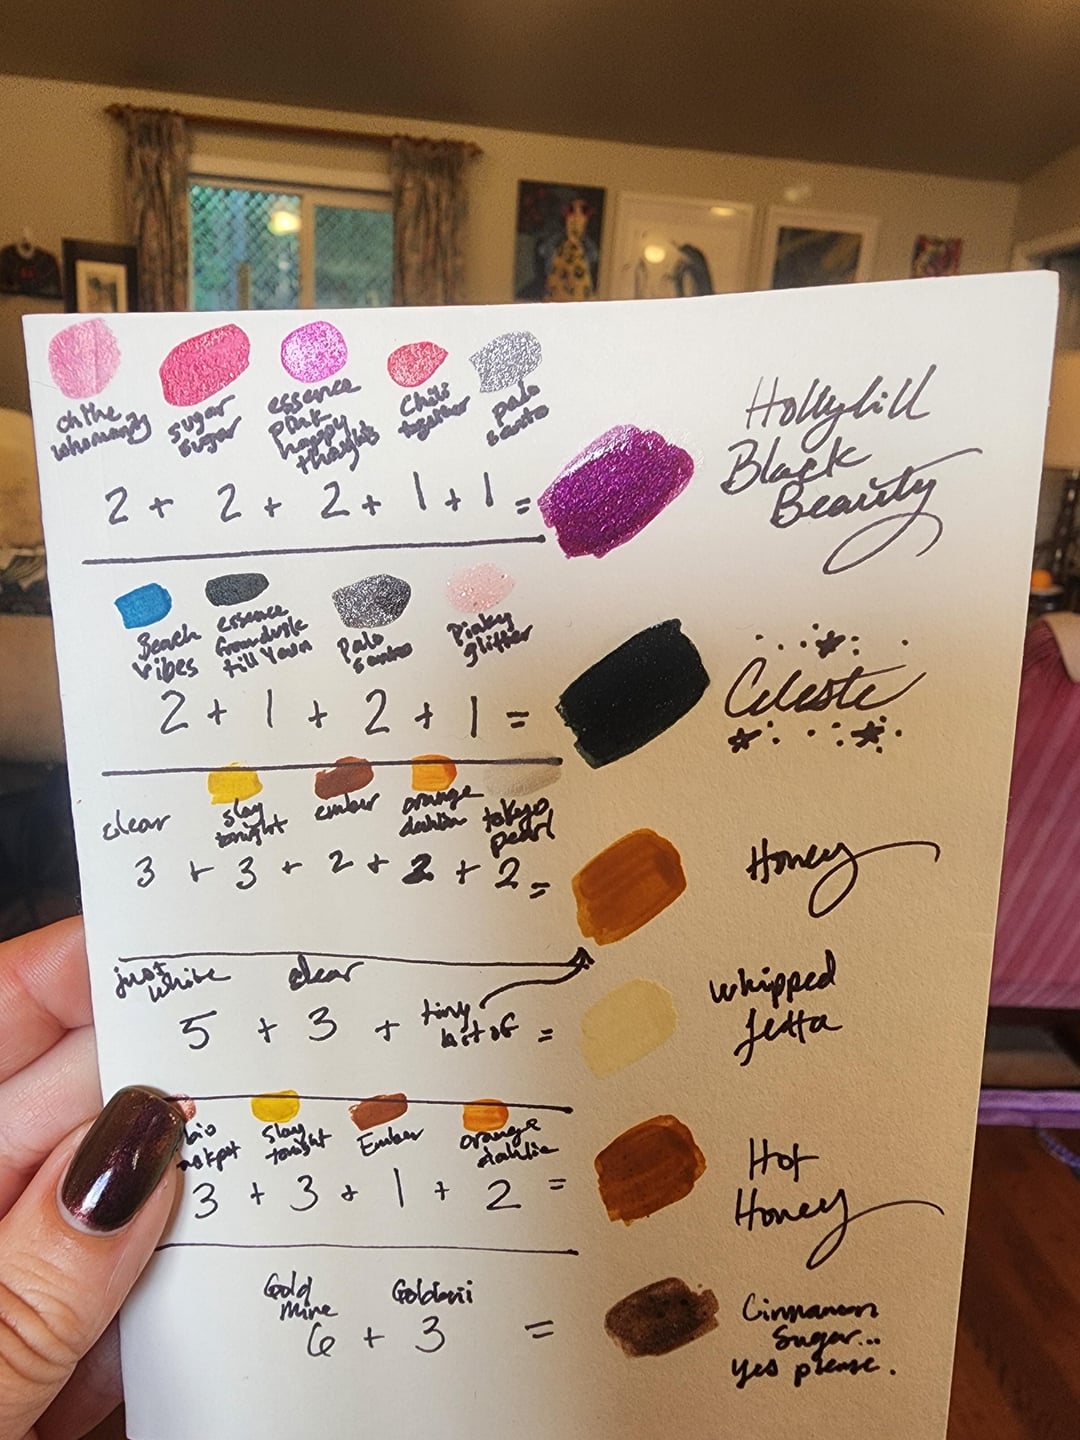 on the
sugar
sugar
essence
pink
happy
thoughts
Chili
together
palo
santo
2 + 2 + 2 + 1 + 1 =
Hollyhill
Black
Beauty
Beach
vibes
essence
from dusk
till dawn
Palo
santo
Pinky
glitter
2 + 1 + 2 + 1 =
Celeste
clear
slay
tonight
ember
orange
dahlia
tokyo
pearl
3 + 3 + 2 + 2 + 2 =
Honey
just
white
clear
5 + 3 + tiny
bit of =
whipped
fetta
slay
tonight
Ember
orange
dahlia
3 + 3 + 1 + 2 =
Hot
Honey
Gold
Mine
6 + 3 =
Cinnamon
Sugar...
yes please.